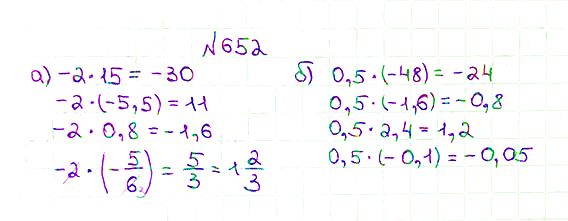 №652
а) -2·15 = -30
-2·(-5,5) = 11
-2·0,8 = -1,6
-2·(-5/6) = 5/3 = 1 2/3
б) 0,5·(-48) = -24
0,5·(-1,6) = -0,8
0,5·2,4 = 1,2
0,5·(-0,1) = -0,05